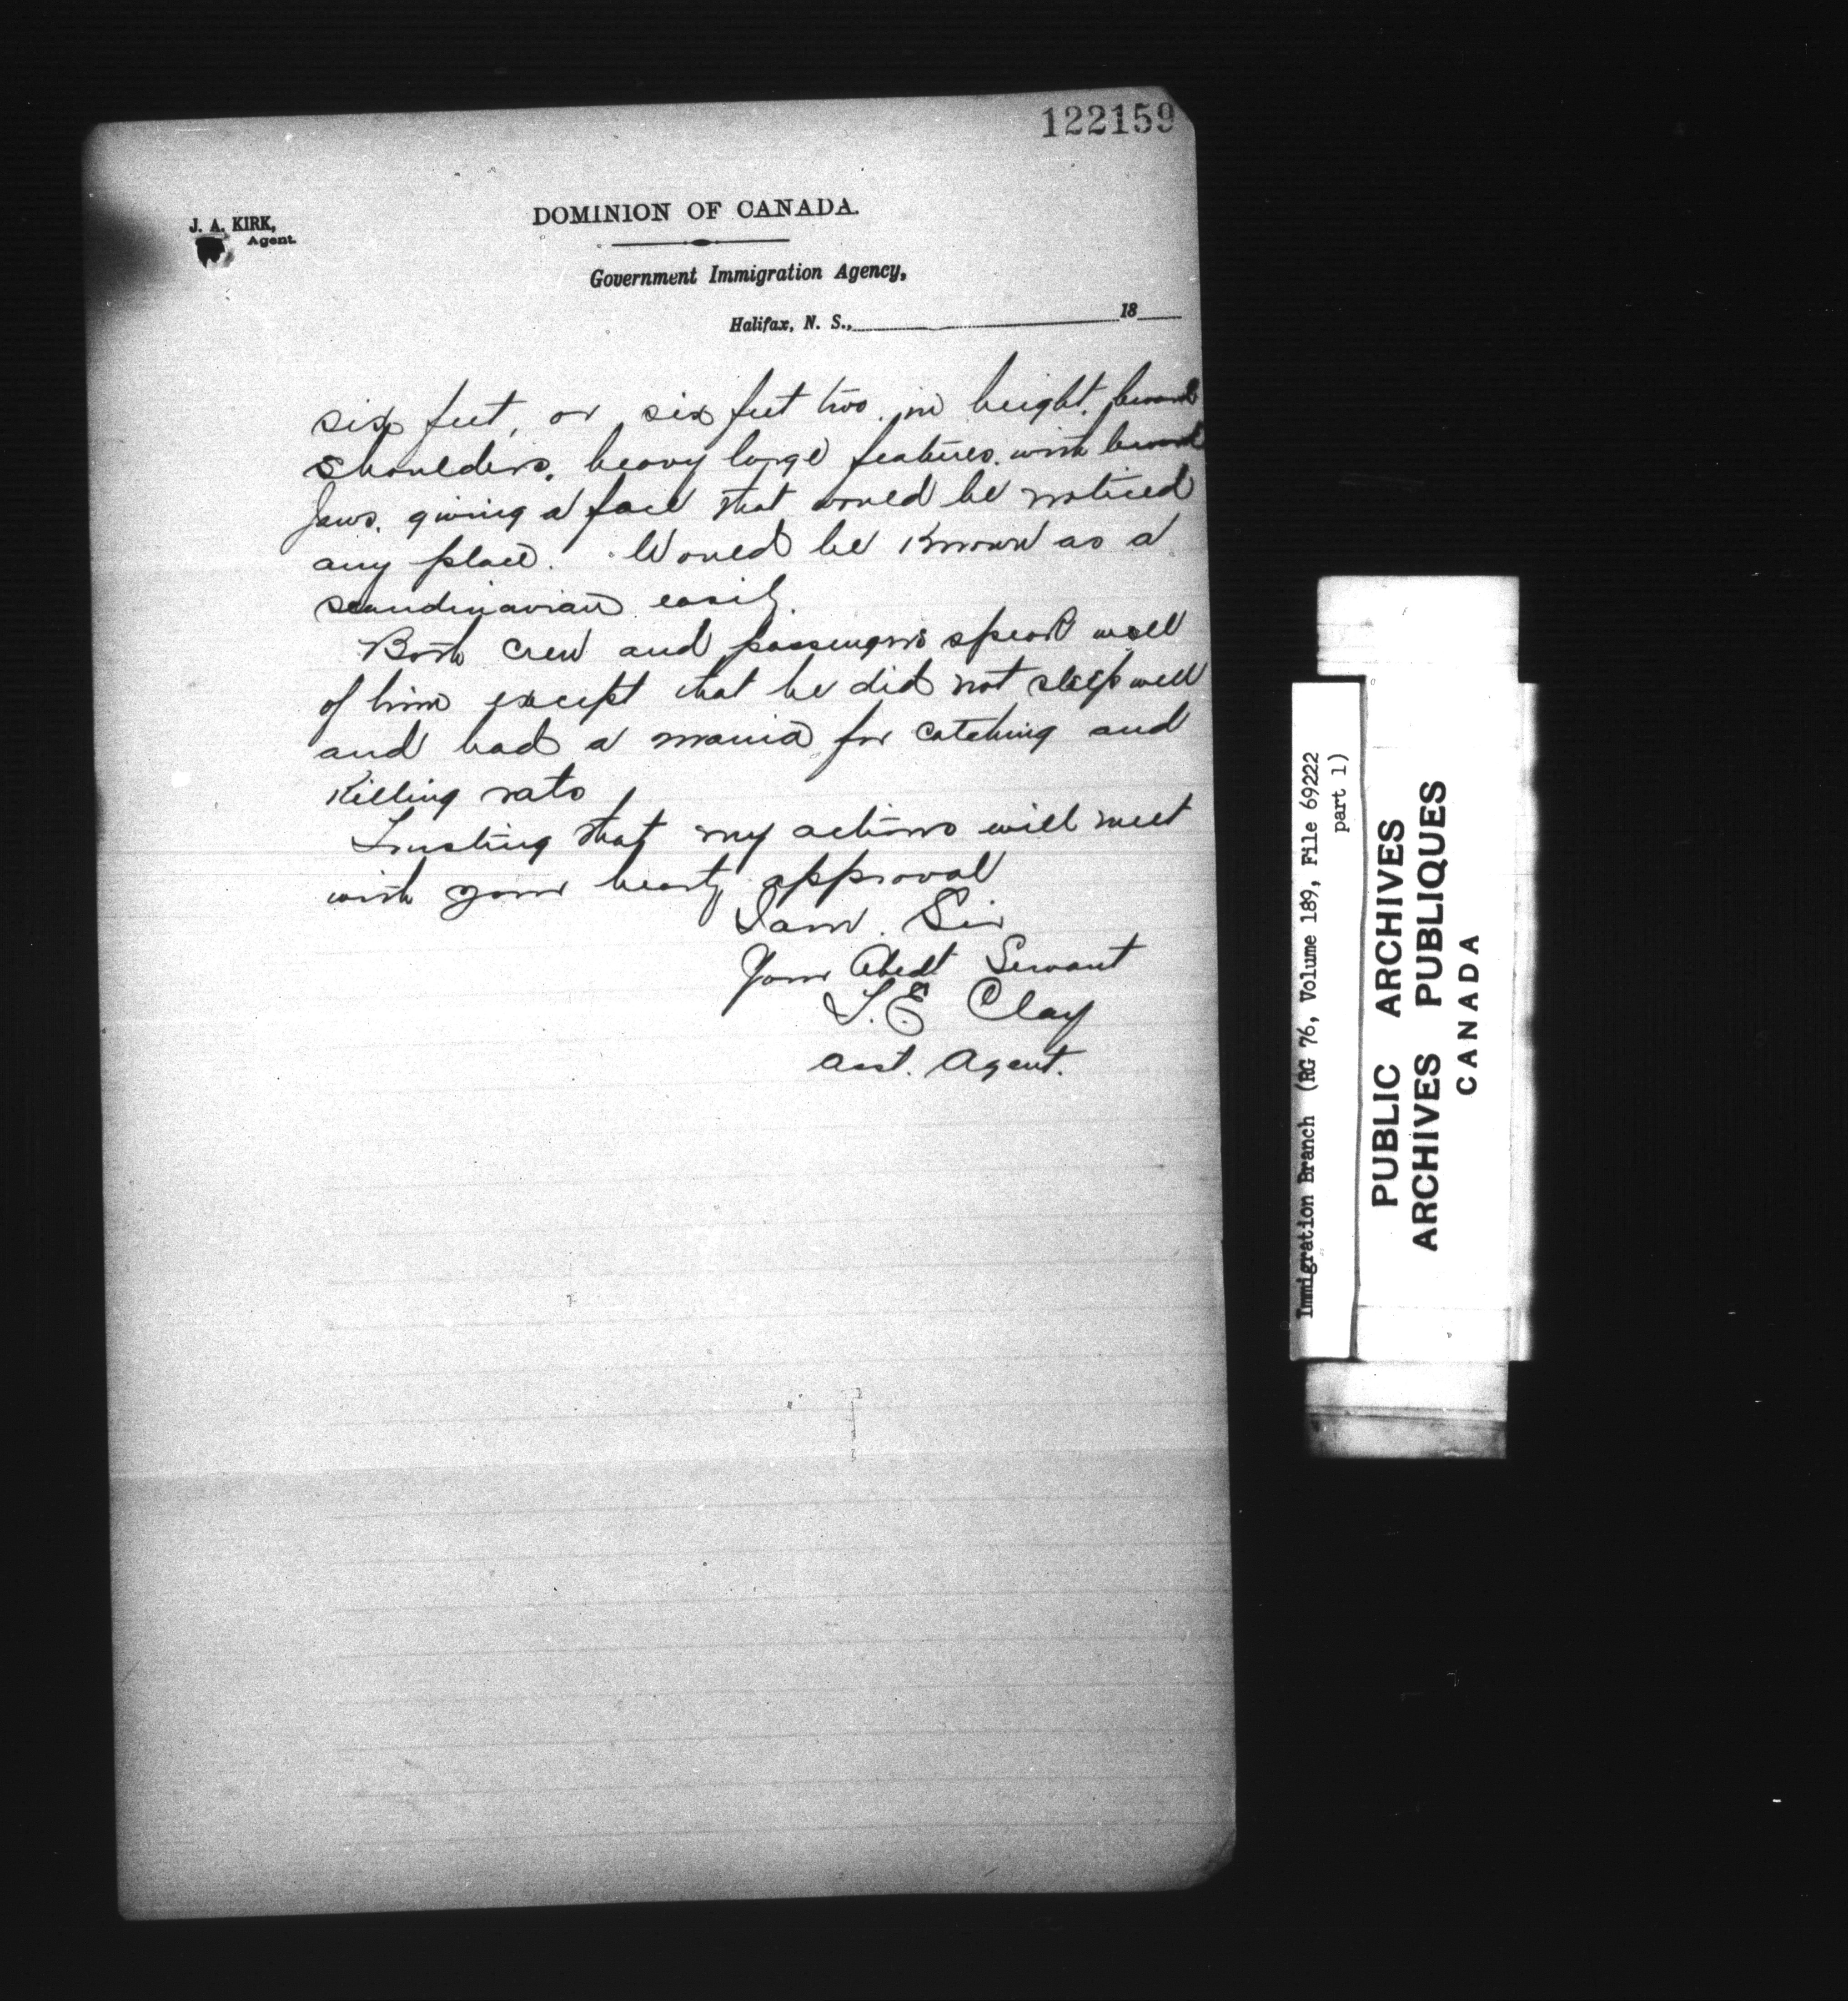 122159
J. A. KIRK,
Agent.
DOMINION OF CANADA.
Government Immigration Agency,
Halifax, N. S., 18
six feet, or six feet two in height, broad
shoulders, heavy large features. with broad
Jaws. giving a face that would be noticed
any place. Would be Known as a
Scandinavian easily.
Both Crew and passengers speak well
of him except that he did not sleep well
and had a mania for catching and
Killing rats
Trusting that my actions will meet
with your hearty approval
I am. Sir
Your Obedt Servant
L. E. Clay
Asst. Agent.
Immigration Branch (RG 76, Volume 189, File 69222
part 1)
PUBLIC ARCHIVES
ARCHIVES PUBLIQUES
CANADA